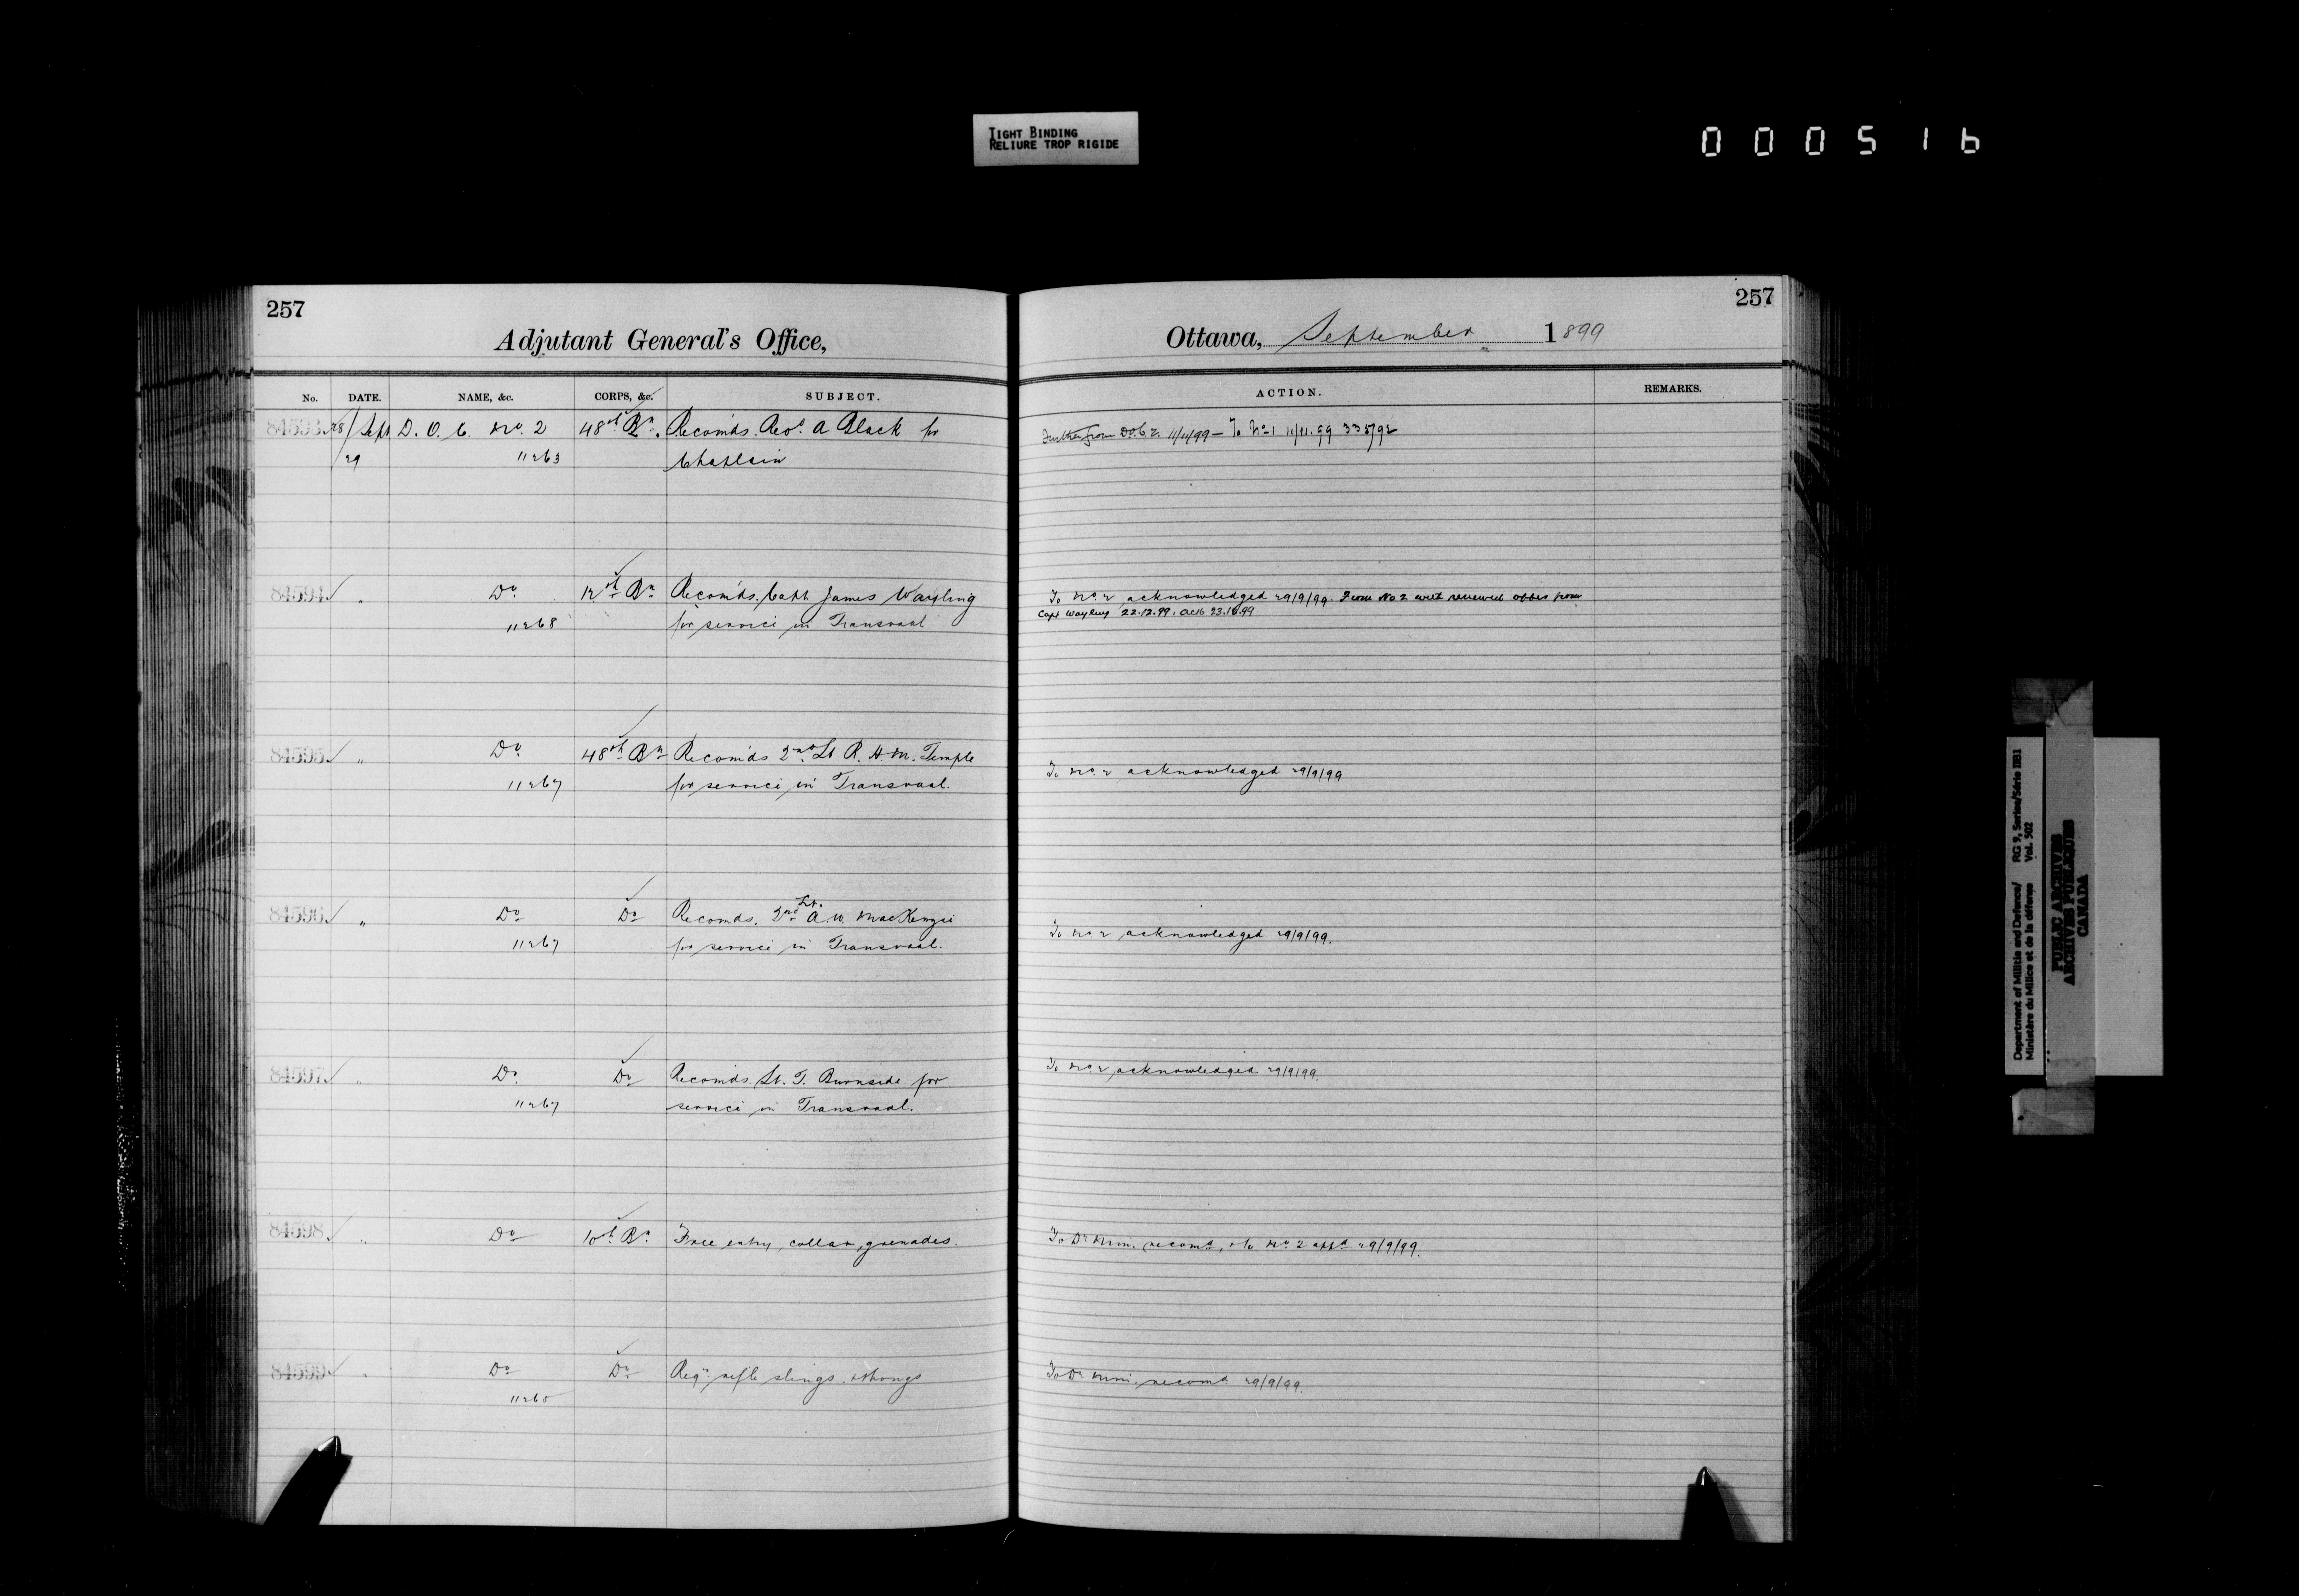 TIGHT BINDING
RELIURE TROP RIGIDE
000516
257
Adjutant General's Office,
No. DATE. NAME, &c. CORPS, &c. SUBJECT.
84593 28/Sept D. O. C. No. 2 48th Bn. Recomds. Revd. A Black for
29 11263 Chaplain
84594 " Do 12th Bn Recomds. Capt James Wayling
11268 for service in Transvaal
84595 " Do 48th Bn Recomds 2nd Lt R. H. M. Temple
11267 for service in Transvaal.
84596 " Do Do Recomds. 2nd Lt. A. W. MacKenzie
11267 for service in Transvaal.
84597 " Do Do Recomds. Lt. T. Burnside for
11267 service in Transvaal.
84598 " Do 10th Bn. Free entry, collar, grenades
84599 " Do Do Reqn. rifle slings & thongs
1126
257
Ottawa, September 1899
ACTION. REMARKS.
Further from D.O.C 2. 11/11/99 — To No 1 11/11.99 335/92
To No 2 acknowledged 29/9/99. From No 2 with renewed offer from
Capt Wayling 22.12.99. Ack 23.12.99
To No 2 acknowledged 29/9/99
To No 2 acknowledged 29/9/99.
To No 2 acknowledged 29/9/99.
To D. Mini. recomd, & to No 2 29/9/99.
To D. Mini. recomd. 29/9/99.
Department of Militia and Defence/ RG 9, Series/Série IIB1
Ministère du Milice et de la défense Vol. 502
PUBLIC ARCHIVES
ARCHIVES PUBLIQUES
CANADA